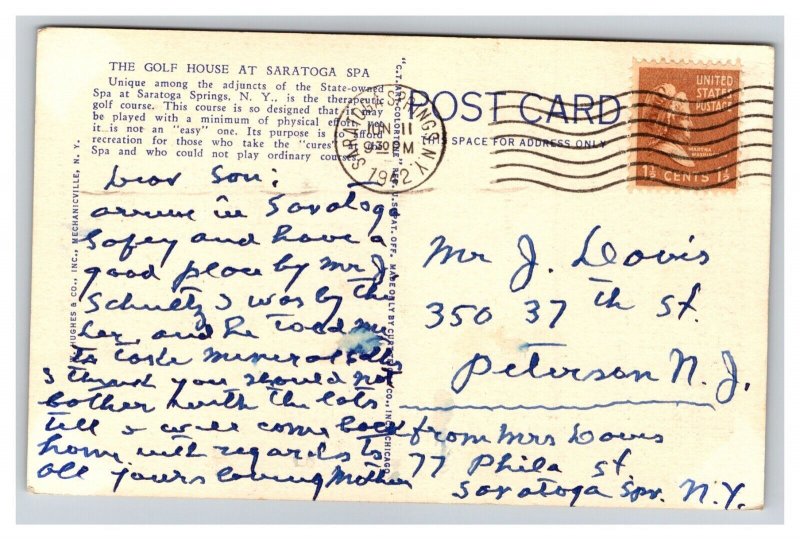 THE GOLF HOUSE AT SARATOGA SPA
Unique among the adjuncts of the State-owned
Spa at Saratoga Springs, N. Y., is the therapeutic
golf course. This course is so designed that it may
be played with a minimum of physical effort, yet
it is not an "easy" one. Its purpose is to afford
recreation for those who take the "cures" at the
Spa and who could not play ordinary courses.
Dear Son:
arrive in Saratoga
Safey and have a
good place by Mr J.
Schultz I was by the
and he toad me
to take mineral
I thank you should not
bother with the
till I will come back
home with regards to
all yours loving Mother
HUGHES & CO., INC., MECHANICVILLE, N. Y.
"C.T. ART-COLORTONE" REG. U.S. PAT. OFF. MADE ONLY BY CURT CO., INC., CHICAGO
POST CARD
THIS SPACE FOR ADDRESS ONLY
SARATOGA SPRINGS, N.Y.
JUN 11
9 30 PM
1942
UNITED
STATES
POSTAGE
MARTHA
1½ CENTS 1½
Mr J. Davis
350 37th St.
Peterson N. J.
from Mrs Davis
77 Phila St.
Saratoga Spr. N.Y.